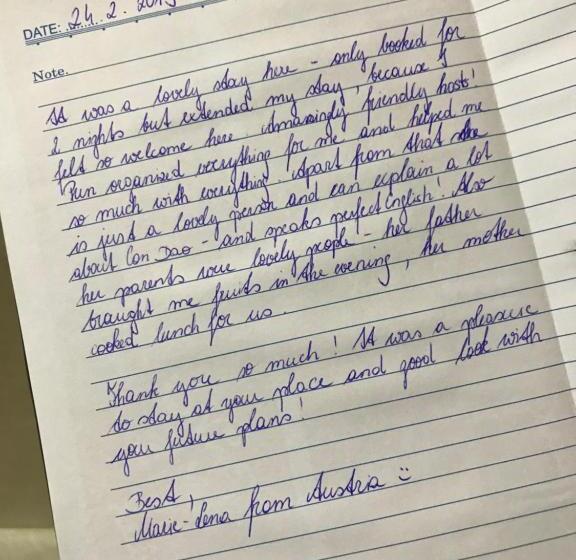 DATE: 24. 2. 201
Note.
It was a lovely stay here - only booked for
2 nights but extended my stay, because I
felt so welcome here. Amazingly friendly hosts!
organized everything for me and helped me
so much with everything. Apart from that she
is just a lovely person and can explain a lot
about Con Dao - and speaks perfect English! Also
her parents were lovely people - her father
braught me fruits in the evening, her mother
cooked lunch for us.
Thank you so much! It was a pleasure
to stay at your place and good look with
your future plans!
Best,
Marie-Lena from Austria :)